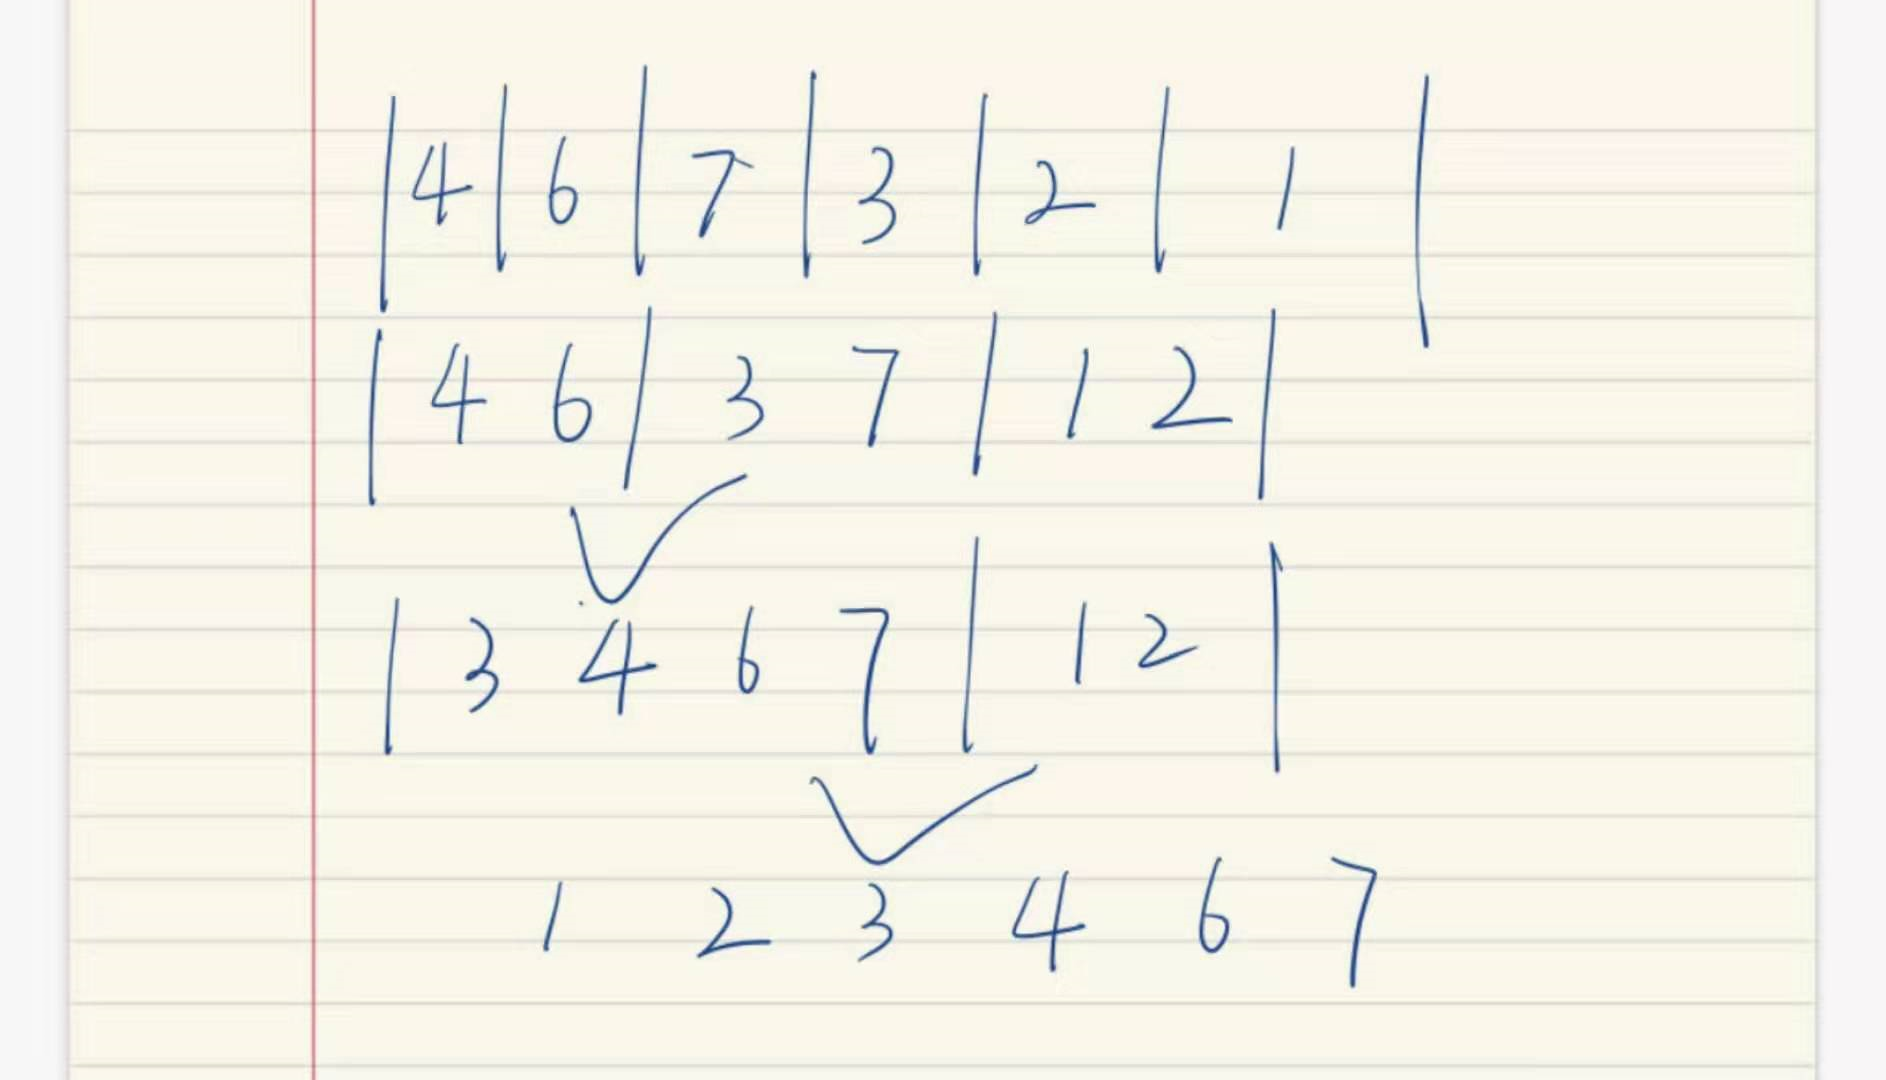 |4|6|7|3|2|1|
|4 6|3 7|1 2|
|3 4 6 7|1 2|
1 2 3 4 6 7